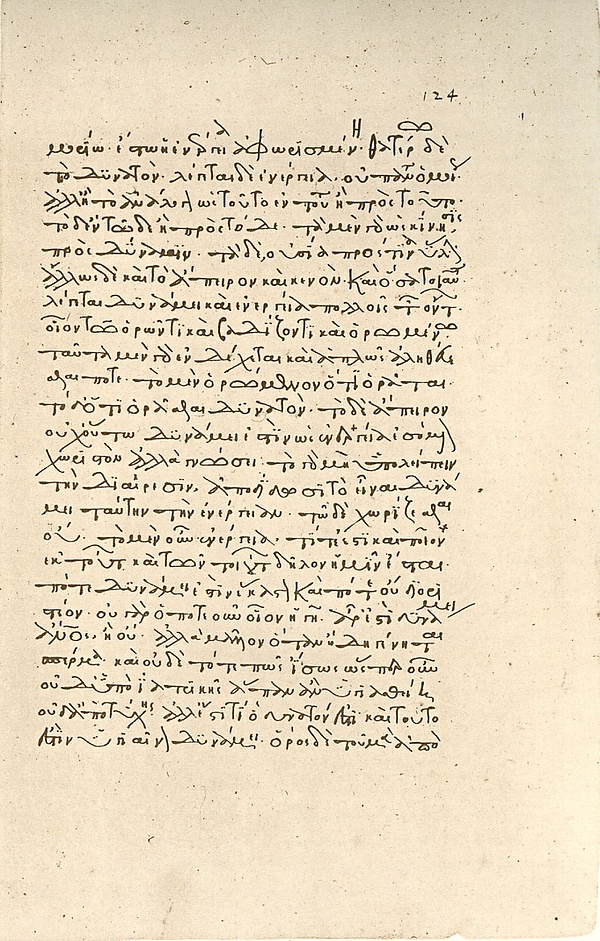 μορίω· ἔστω ἡ ἐνέργεια ἀφωρισμένη· θατέρω δὲ
τὸ δυνατόν· λέγεται δὲ ἐνεργεία· οὐ πάντα ὁμοίως·
ἀλλ' ἢ τὸ ἀνάλογον ὡς τοῦτο ἐν τούτω ἢ πρὸς τοῦτο·
τὸ δ' ἐν τῶδε ἢ πρὸς τόδε· τὰ μὲν γὰρ ὡς κίνησις
πρὸς δύναμιν· τὰ δὲ, οὐσία πρός τινα ὕλην
ἄλλως δὲ καὶ τὸ ἄπειρον καὶ κενὸν· καὶ ὅσα τοιαῦτα
λέγεται δυνάμει καὶ ἐνεργεία πολλοῖς τῶν ὄντων·
οἷον τῶ ὁρῶντι καὶ βαδίζοντι καὶ ὁρωμένω
ταῦτα μὲν γὰρ ἐνδέχεται καὶ ἁπλῶς ἀληθεύε
σθαί ποτε· τὸ μὲν ὁρώμενον ὅτι ὁρᾶται·
τὸ δ' ὅτι ὁρᾶσθαι δυνατόν· τὸ δὲ ἄπειρον
οὐχ οὕτω δυνάμει ἐστὶν ὡς ἐνεργεία ἐσόμενον
χωριστὸν ἀλλὰ γνώσει· τὸ γὰρ μὴ ὑπολείπειν
τὴν διαίρεσιν, ἀποδίδωσι τὸ εἶναι δυνά
μει ταύτην τὴν ἐνέργειαν· τὸ δὲ χωρίζεσθαι
οὔ· τὸ μὲν οὖν ἐνεργεία· τί τέ ἐστι καὶ ποῖον
ἐκ τούτων καὶ τῶν τοιούτων δῆλον ἡμῖν ἔσται·
πότε δυνάμει ἐστὶν ἕκαστον καὶ πότε οὔ διορι
στέον· οὐ γὰρ ὁποτεοῦν οἷον ἡ γῆ· ἆρ' ἐστὶ δυνάμει
ἄνθρωπος, ἢ οὔ· ἀλλὰ μᾶλλον ὅταν ἤδη γένηται
σπέρμα· καὶ οὐδὲ τότε πως ἴσως ὥσπερ οὖν
οὐδ' ὑπὸ ἰατρικῆς ἅπαν ἂν ὑγιασθείη
οὐδ' ἀπὸ τύχης ἀλλ' ἔστι τι ὃ δυνατόν ἐστι καὶ τοῦτο
ἐστὶν ὑγιαῖνον δυνάμει· ὅρος δὲ τοῦ μὲν ἀπὸ
124